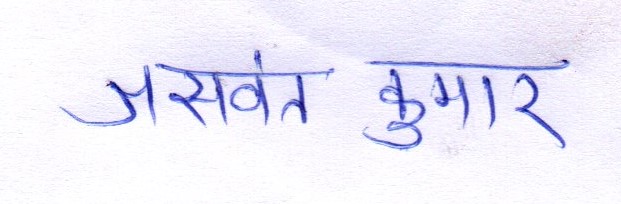 जसवंत कुमार